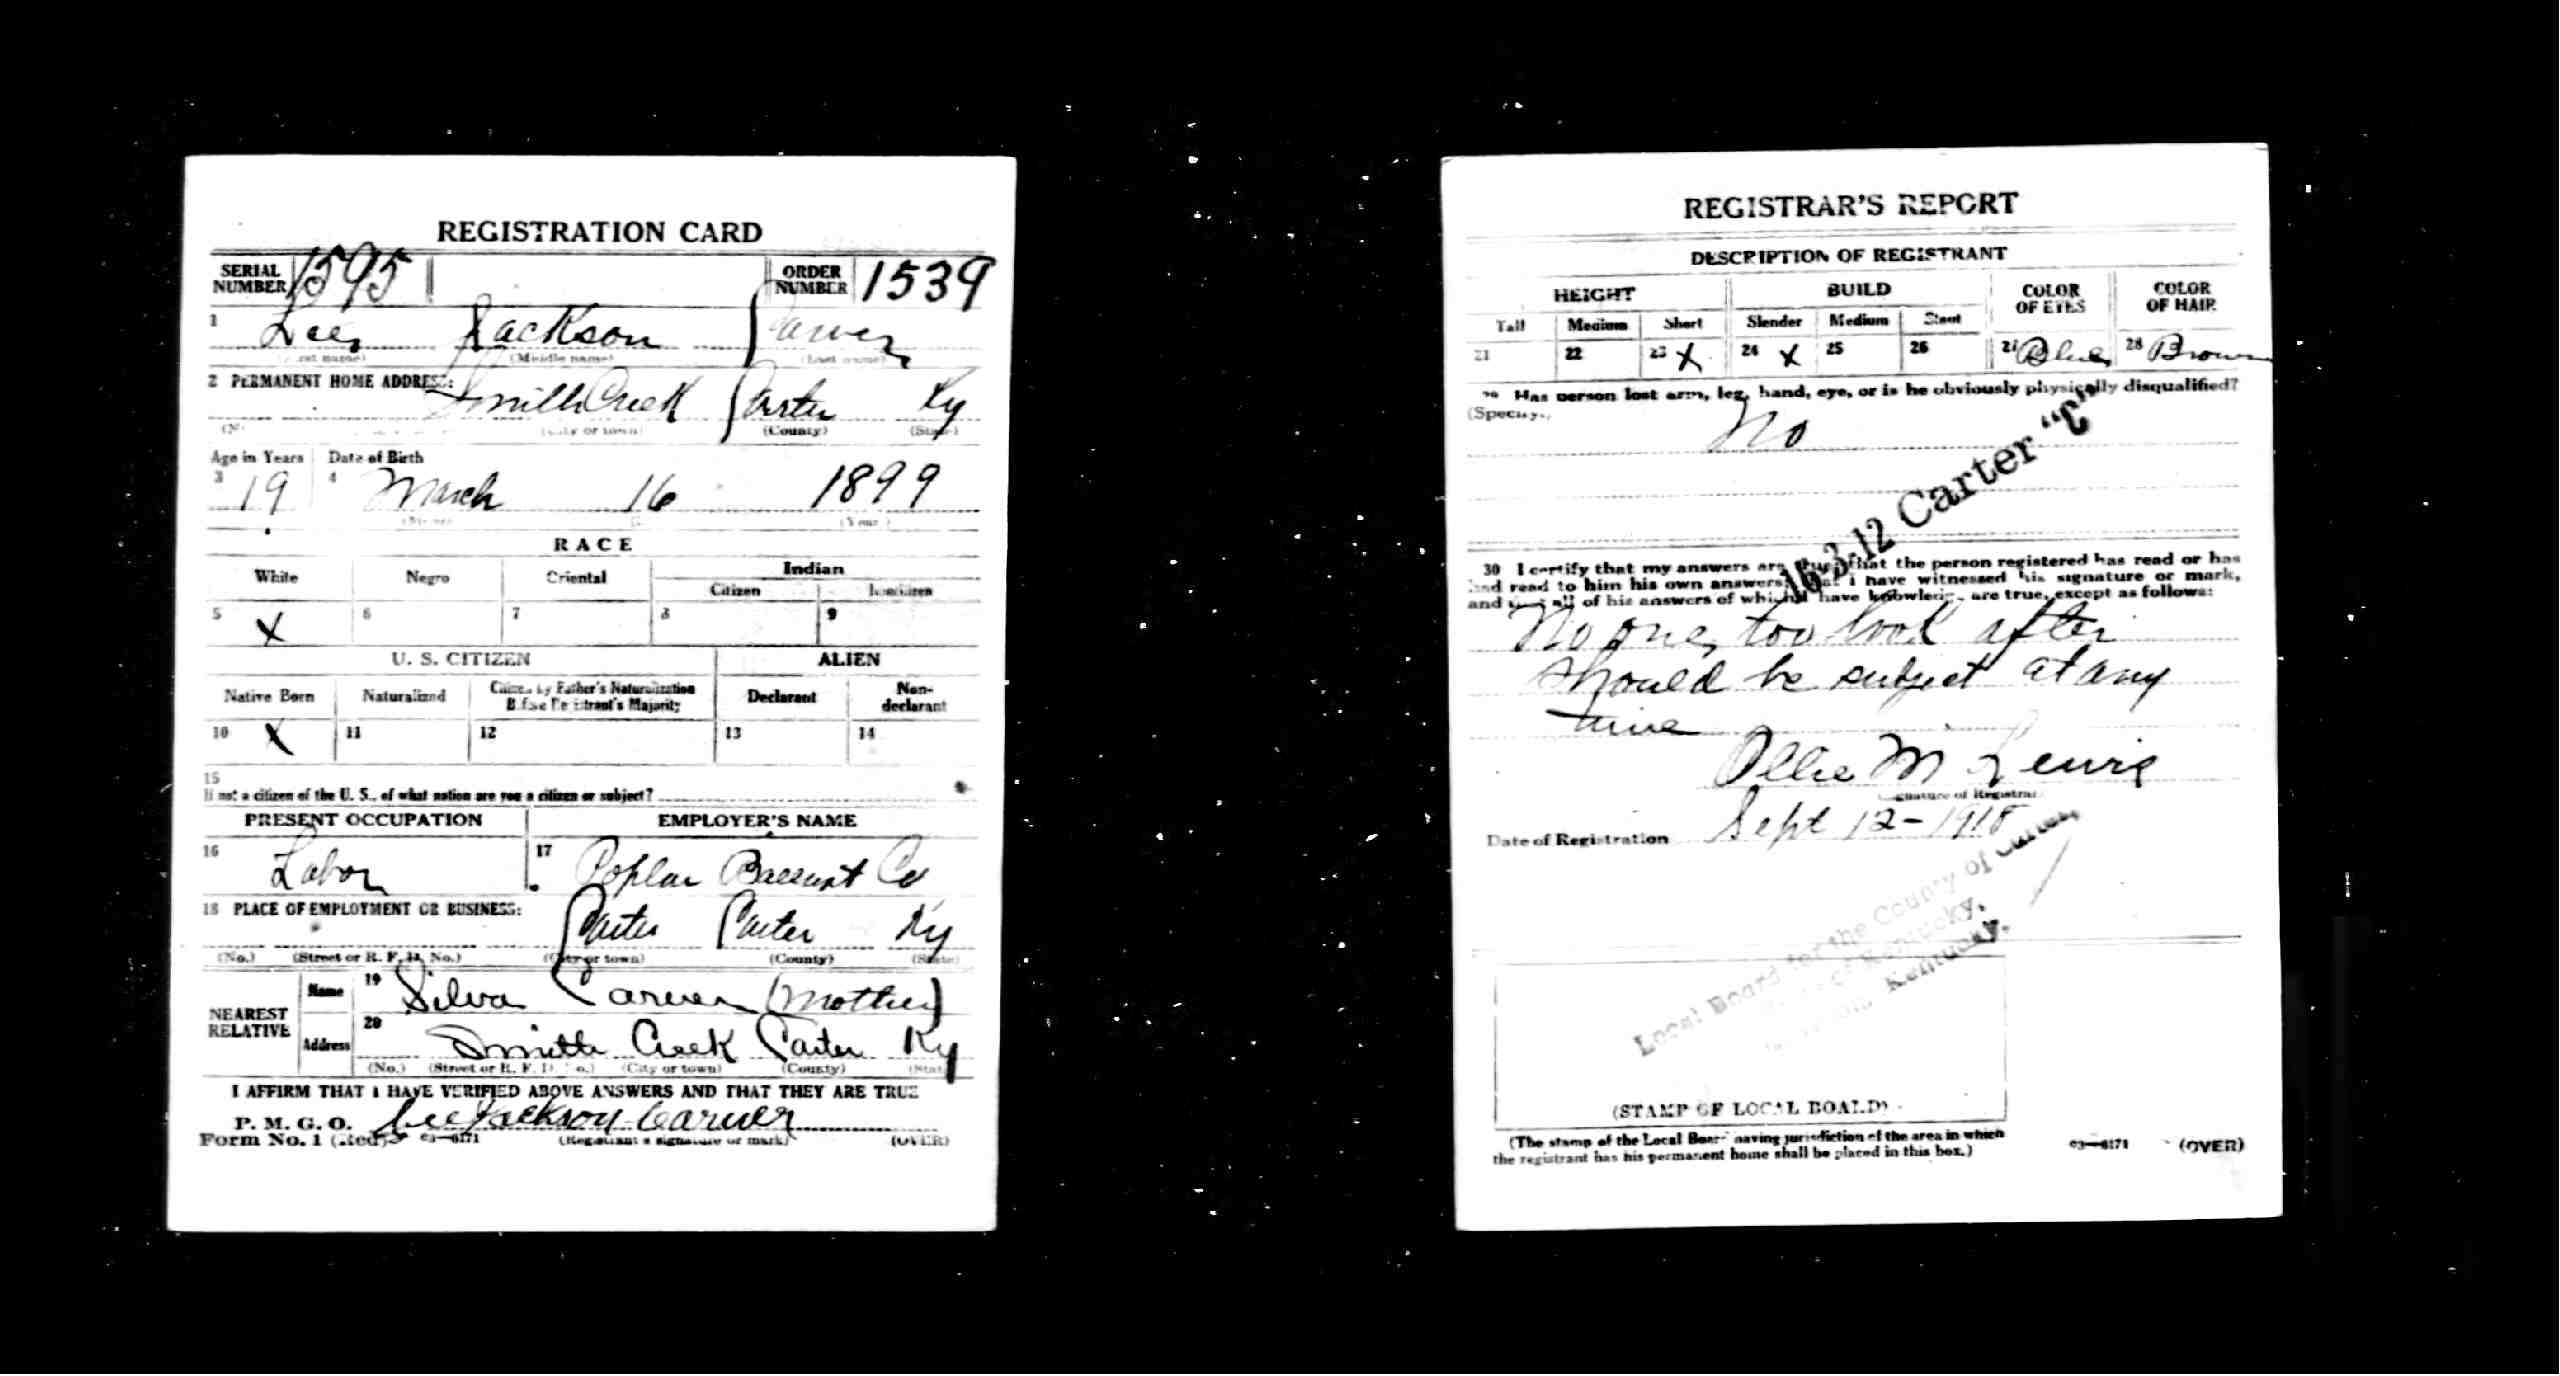 REGISTRATION CARD
SERIAL NUMBER 1595 ORDER NUMBER 1539
1 Lee Jackson Carver
(Middle name) (Last name)
2 PERMANENT HOME ADDRESS:
Smith Creek Carter Ky
(City or town) (County) (State)
Age in Years Date of Birth
3 19 4 March 16 1899
(Year)
RACE
White Negro Oriental Indian
Citizen Noncitizen
5 X 6 7 8 9
U. S. CITIZEN ALIEN
Native Born Naturalized Citizen by Father's Naturalization Before Registrant's Majority Declarant Non-declarant
10 X 11 12 13 14
15
If not a citizen of the U. S., of what nation are you a citizen or subject?
PRESENT OCCUPATION EMPLOYER'S NAME
16 Labor 17 Poplar Co
18 PLACE OF EMPLOYMENT OR BUSINESS:
Carter Carter Ky
(No.) (Street or R. F. D. No.) (City or town) (County) (State)
NEAREST RELATIVE
Name 19 Silva Carver (Mother)
Address 20 Smith Creek Carter Ky
(No.) (Street or R. F. D. No.) (City or town) (County) (State)
I AFFIRM THAT I HAVE VERIFIED ABOVE ANSWERS AND THAT THEY ARE TRUE
P. M. G. O. Lee Jackson Carver
Form No. 1 (Red) 03—6171 (Registrant's signature or mark) (OVER)
REGISTRAR'S REPORT
DESCRIPTION OF REGISTRANT
HEIGHT BUILD COLOR OF EYES COLOR OF HAIR
Tall Medium Short Slender Medium Stout
21 22 23 X 24 X 25 26 27 Blue 28 Brown
29 Has person lost arm, leg, hand, eye, or is he obviously physically disqualified?
(Specify.) No
16-3-12 Carter "C"
30 I certify that my answers are true, that the person registered has read or has
had read to him his own answers, that I have witnessed his signature or mark,
and that all of his answers of which I have knowledge are true, except as follows:
No one too look after
should be subject at any
time
Ollie M Lewis
(Signature of Registrar)
Date of Registration Sept 12-1918
Local Board for the County of Carter,
State of Kentucky,
Kentucky.
(STAMP OF LOCAL BOARD)
(The stamp of the Local Board having jurisdiction of the area in which
the registrant has his permanent home shall be placed in this box.)
03—6171 (OVER)